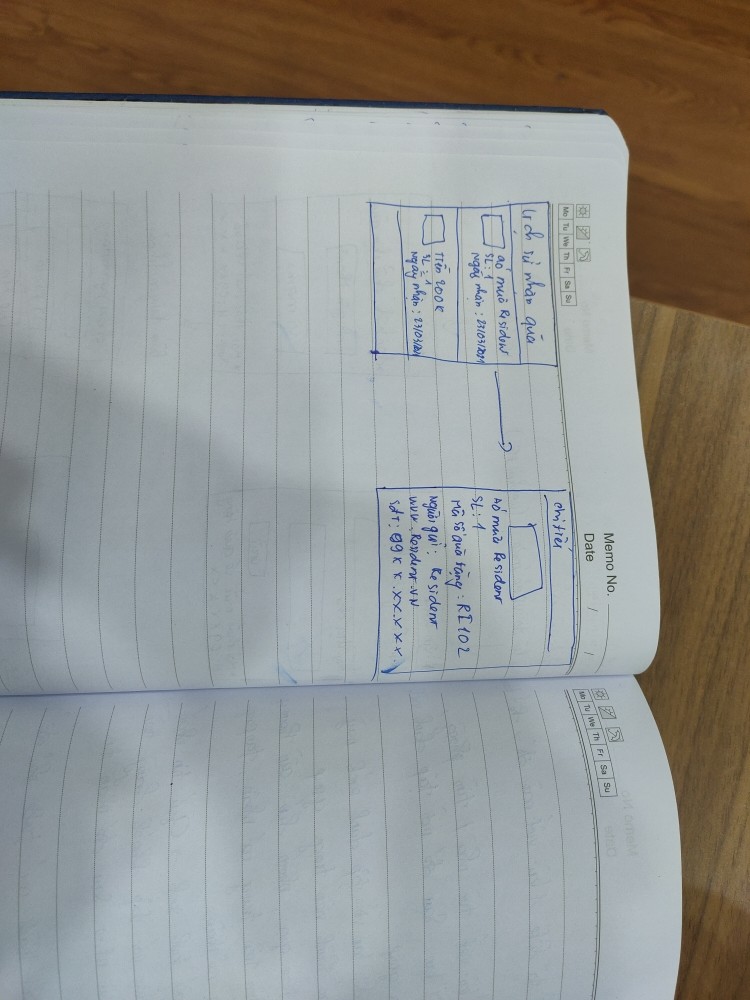 Memo No.
Date / /
Mo Tu We Th Fr Sa Su
Lịch sử nhận quà
áo mưa Resident
SL: 1
Ngày nhận: 23/03/2021
Tiền 200K
SL: 1
Ngày nhận: 23/03/201
chi tiết
Áo mưa Resident
SL: 1
Mã số quà tặng: RI102
Người gửi: Resident
www.Resident.VN
sđt: 09xx.xx.x.xx.
Mo Tu We Th Fr Sa Su